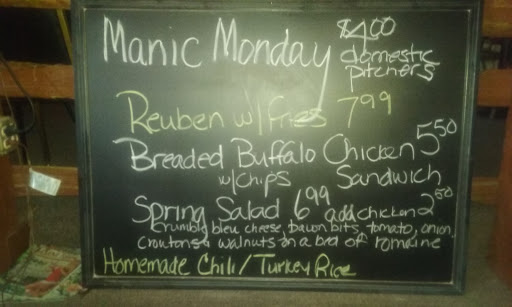 Manic Monday $4.00
domestic
pitchers
Reuben w/ Fries 7 99
Breaded Buffalo Chicken 5 50
w/chips Sandwich
Spring Salad 6 99 add chicken 2 50
crumbly bleu cheese, bacon bits, tomato, onion,
croutons & walnuts on a bed of romaine
Homemade Chili / Turkey Rice